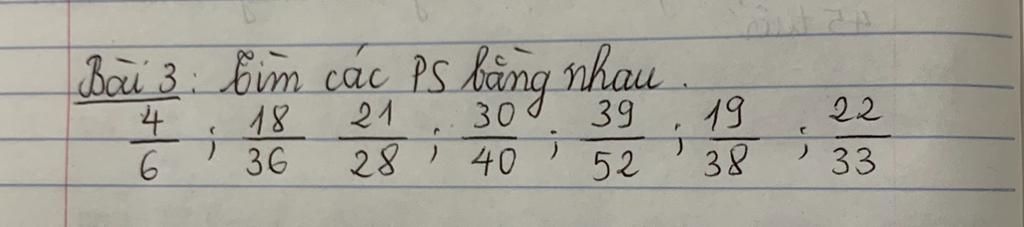 Bài 3: tìm các PS bằng nhau.
4/6 ; 18/36 21/28 ; 30/40 ; 39/52 ; 19/38 ; 22/33